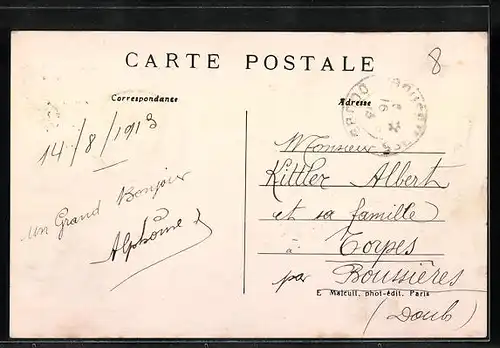 CARTE POSTALE
8
Correspondance
Adresse
14/8/1913
un Grand Bonjour
Alphonse
Monsieur
Kittler Albert
et sa famille
à Torpes
par Boussières
E. Malcuit, phot-édit. Paris
(Doub)